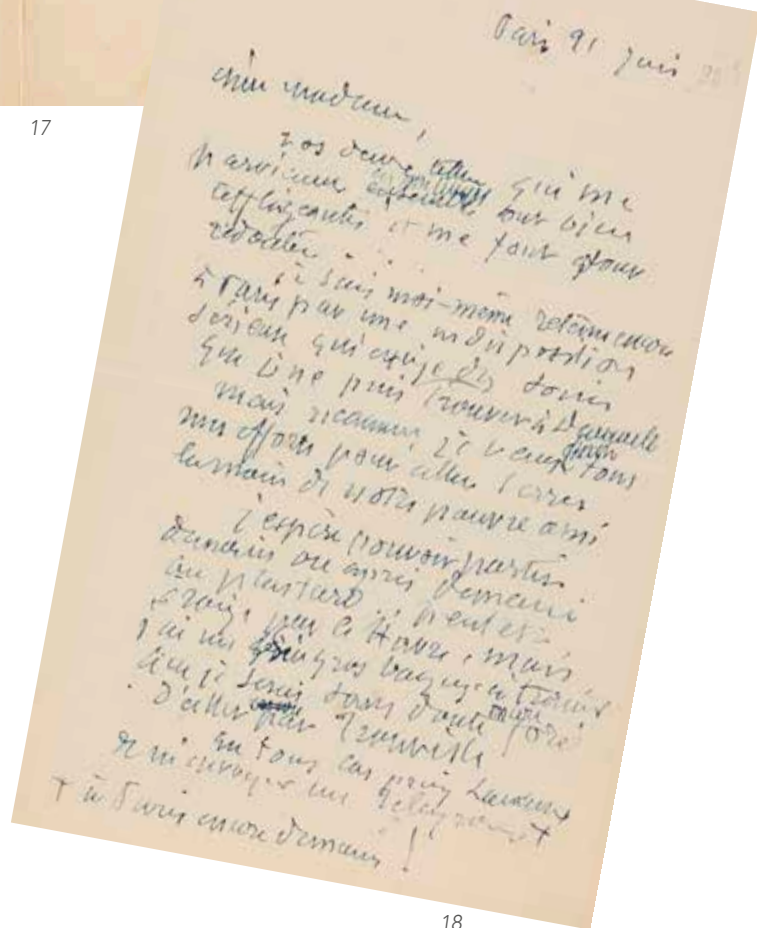 17
Paris 91 Juin
Chère Madame,
vos deux lettres qui me
parviennent ensemble sont bien
affligeantes et me font tout
redouter.
Je suis moi-même retenu encore
à Paris par une indisposition
sérieuse qui exige des soins
que je ne puis trouver à
Mais je veux faire tous
mes efforts pour aller serrer
la main de notre pauvre ami
J'espère pouvoir partir
demain ou après demain
au plus tard, peut être
par le Havre, mais
j'ai un gros bagage
que je serais sans doute forcé
d'aller par Trouville
En tous cas
de m'envoyer un télégramme +
+ à Paris encore demain !
18